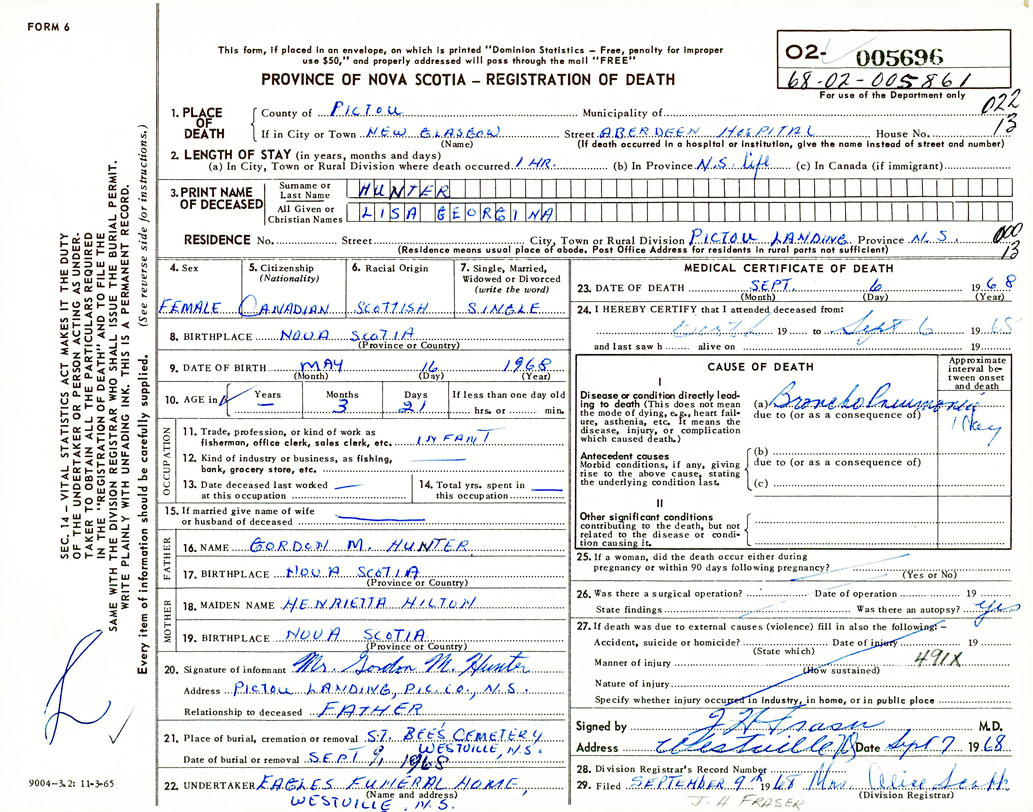 FORM 6
This form, if placed in an envelope, on which is printed "Dominion Statistics – Free, penalty for improper
use $50," and properly addressed will pass through the mail "FREE"
PROVINCE OF NOVA SCOTIA – REGISTRATION OF DEATH
02- 005696
68-02-005861
For use of the Department only
022
13
1. PLACE OF DEATH
County of PICTOU Municipality of
If in City or Town NEW GLASGOW Street ABERDEEN HOSPITAL House No.
(Name) (If death occurred in a hospital or institution, give the name instead of street and number)
2. LENGTH OF STAY (in years, months and days)
(a) In City, Town or Rural Division where death occurred 1 HR. (b) In Province N.S. life (c) In Canada (if immigrant)
3. PRINT NAME OF DECEASED
Surname or Last Name HUNTER
All Given or Christian Names LISA GEORGINA
RESIDENCE No. Street City, Town or Rural Division PICTOU LANDING Province N.S.
(Residence means usual place of abode. Post Office Address for residents in rural parts not sufficient)
000
13
4. Sex
FEMALE
5. Citizenship (Nationality)
CANADIAN
6. Racial Origin
SCOTTISH
7. Single, Married, Widowed or Divorced (write the word)
SINGLE
8. BIRTHPLACE NOVA SCOTIA
(Province or Country)
9. DATE OF BIRTH MAY 16 1968
(Month) (Day) (Year)
10. AGE in Years – Months 3 Days 21 If less than one day old
hrs. or min.
OCCUPATION
11. Trade, profession, or kind of work as
fisherman, office clerk, sales clerk, etc. INFANT
12. Kind of industry or business, as fishing,
bank, grocery store, etc.
13. Date deceased last worked
at this occupation
14. Total yrs. spent in
this occupation
15. If married give name of wife
or husband of deceased
FATHER
16. NAME GORDON M. HUNTER
17. BIRTHPLACE NOVA SCOTIA
(Province or Country)
MOTHER
18. MAIDEN NAME HENRIETTA HILTON
19. BIRTHPLACE NOVA SCOTIA
(Province or Country)
20. Signature of informant Mr. Gordon M. Hunter
Address PICTOU LANDING, PIC. CO., N.S.
Relationship to deceased FATHER
21. Place of burial, cremation or removal ST. BEE'S CEMETERY
WESTVILLE, N.S.
Date of burial or removal SEPT 9, 1968
22. UNDERTAKER EAGLES FUNERAL HOME,
(Name and address)
WESTVILLE, N.S.
MEDICAL CERTIFICATE OF DEATH
23. DATE OF DEATH SEPT. 6 1968
(Month) (Day) (Year)
24. I HEREBY CERTIFY that I attended deceased from:
19 to Sept 6 1968
and last saw h alive on 19
CAUSE OF DEATH
Approximate interval between onset and death
I
Disease or condition directly leading
to death (This does not mean
the mode of dying, e.g., heart failure,
asthenia, etc. It means the
disease, injury, or complication
which caused death.)
(a) Broncho Pneumonia
due to (or as a consequence of)
1 Day
Antecedent causes
Morbid conditions, if any, giving
rise to the above cause, stating
the underlying condition last.
(b)
due to (or as a consequence of)
(c)
II
Other significant conditions
contributing to the death, but not
related to the disease or condition
causing it.
25. If a woman, did the death occur either during
pregnancy or within 90 days following pregnancy?
(Yes or No)
26. Was there a surgical operation? Date of operation 19
State findings Was there an autopsy? yes
27. If death was due to external causes (violence) fill in also the following:–
Accident, suicide or homicide? Date of injury 19
(State which)
Manner of injury 491X
(How sustained)
Nature of injury
Specify whether injury occurred in industry, in home, or in public place
Signed by J H Fraser M.D.
Address Westville NS Date Sept 7 1968
28. Division Registrar's Record Number
29. Filed SEPTEMBER 9th 1968 Mrs. Alice Scapp
(Division Registrar)
J. H FRASER
SEC. 14 – VITAL STATISTICS ACT MAKES IT THE DUTY
OF THE UNDERTAKER OR PERSON ACTING AS UNDER-
TAKER TO OBTAIN ALL THE PARTICULARS REQUIRED
IN THE "REGISTRATION OF DEATH" AND TO FILE THE
SAME WITH THE DIVISION REGISTRAR WHO SHALL ISSUE THE BURIAL PERMIT.
WRITE PLAINLY WITH UNFADING INK. THIS IS A PERMANENT RECORD.
Every item of information should be carefully supplied. (See reverse side for instructions.)
9004-3.2: 11-3-65